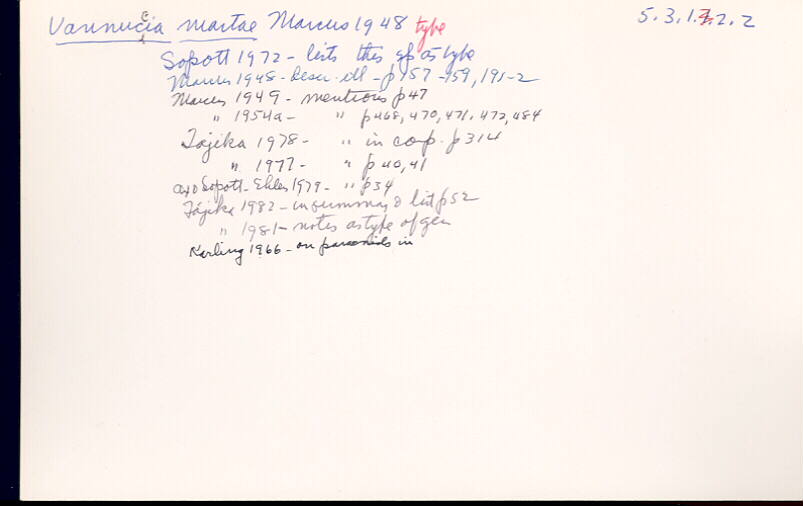 Vannuccia martae Marcus 1948 type 5.3.1.2.2.2
Sopott 1972 - lists this sp as type
Marcus 1948 - descr. ill - p 157-159, 191-2
Marcus 1949 - mentions p 47
" 1954a - " p 468, 470, 471, 472, 484
Tajika 1978 - " in comp. p 314
" 1977 - " p 40, 41
Ax & Sopott-Ehlers 1979 - " p 34
Tajika 1982 - in summary & list p 52
" 1981 - notes as type of gen
Karling 1966 - on paracnids in